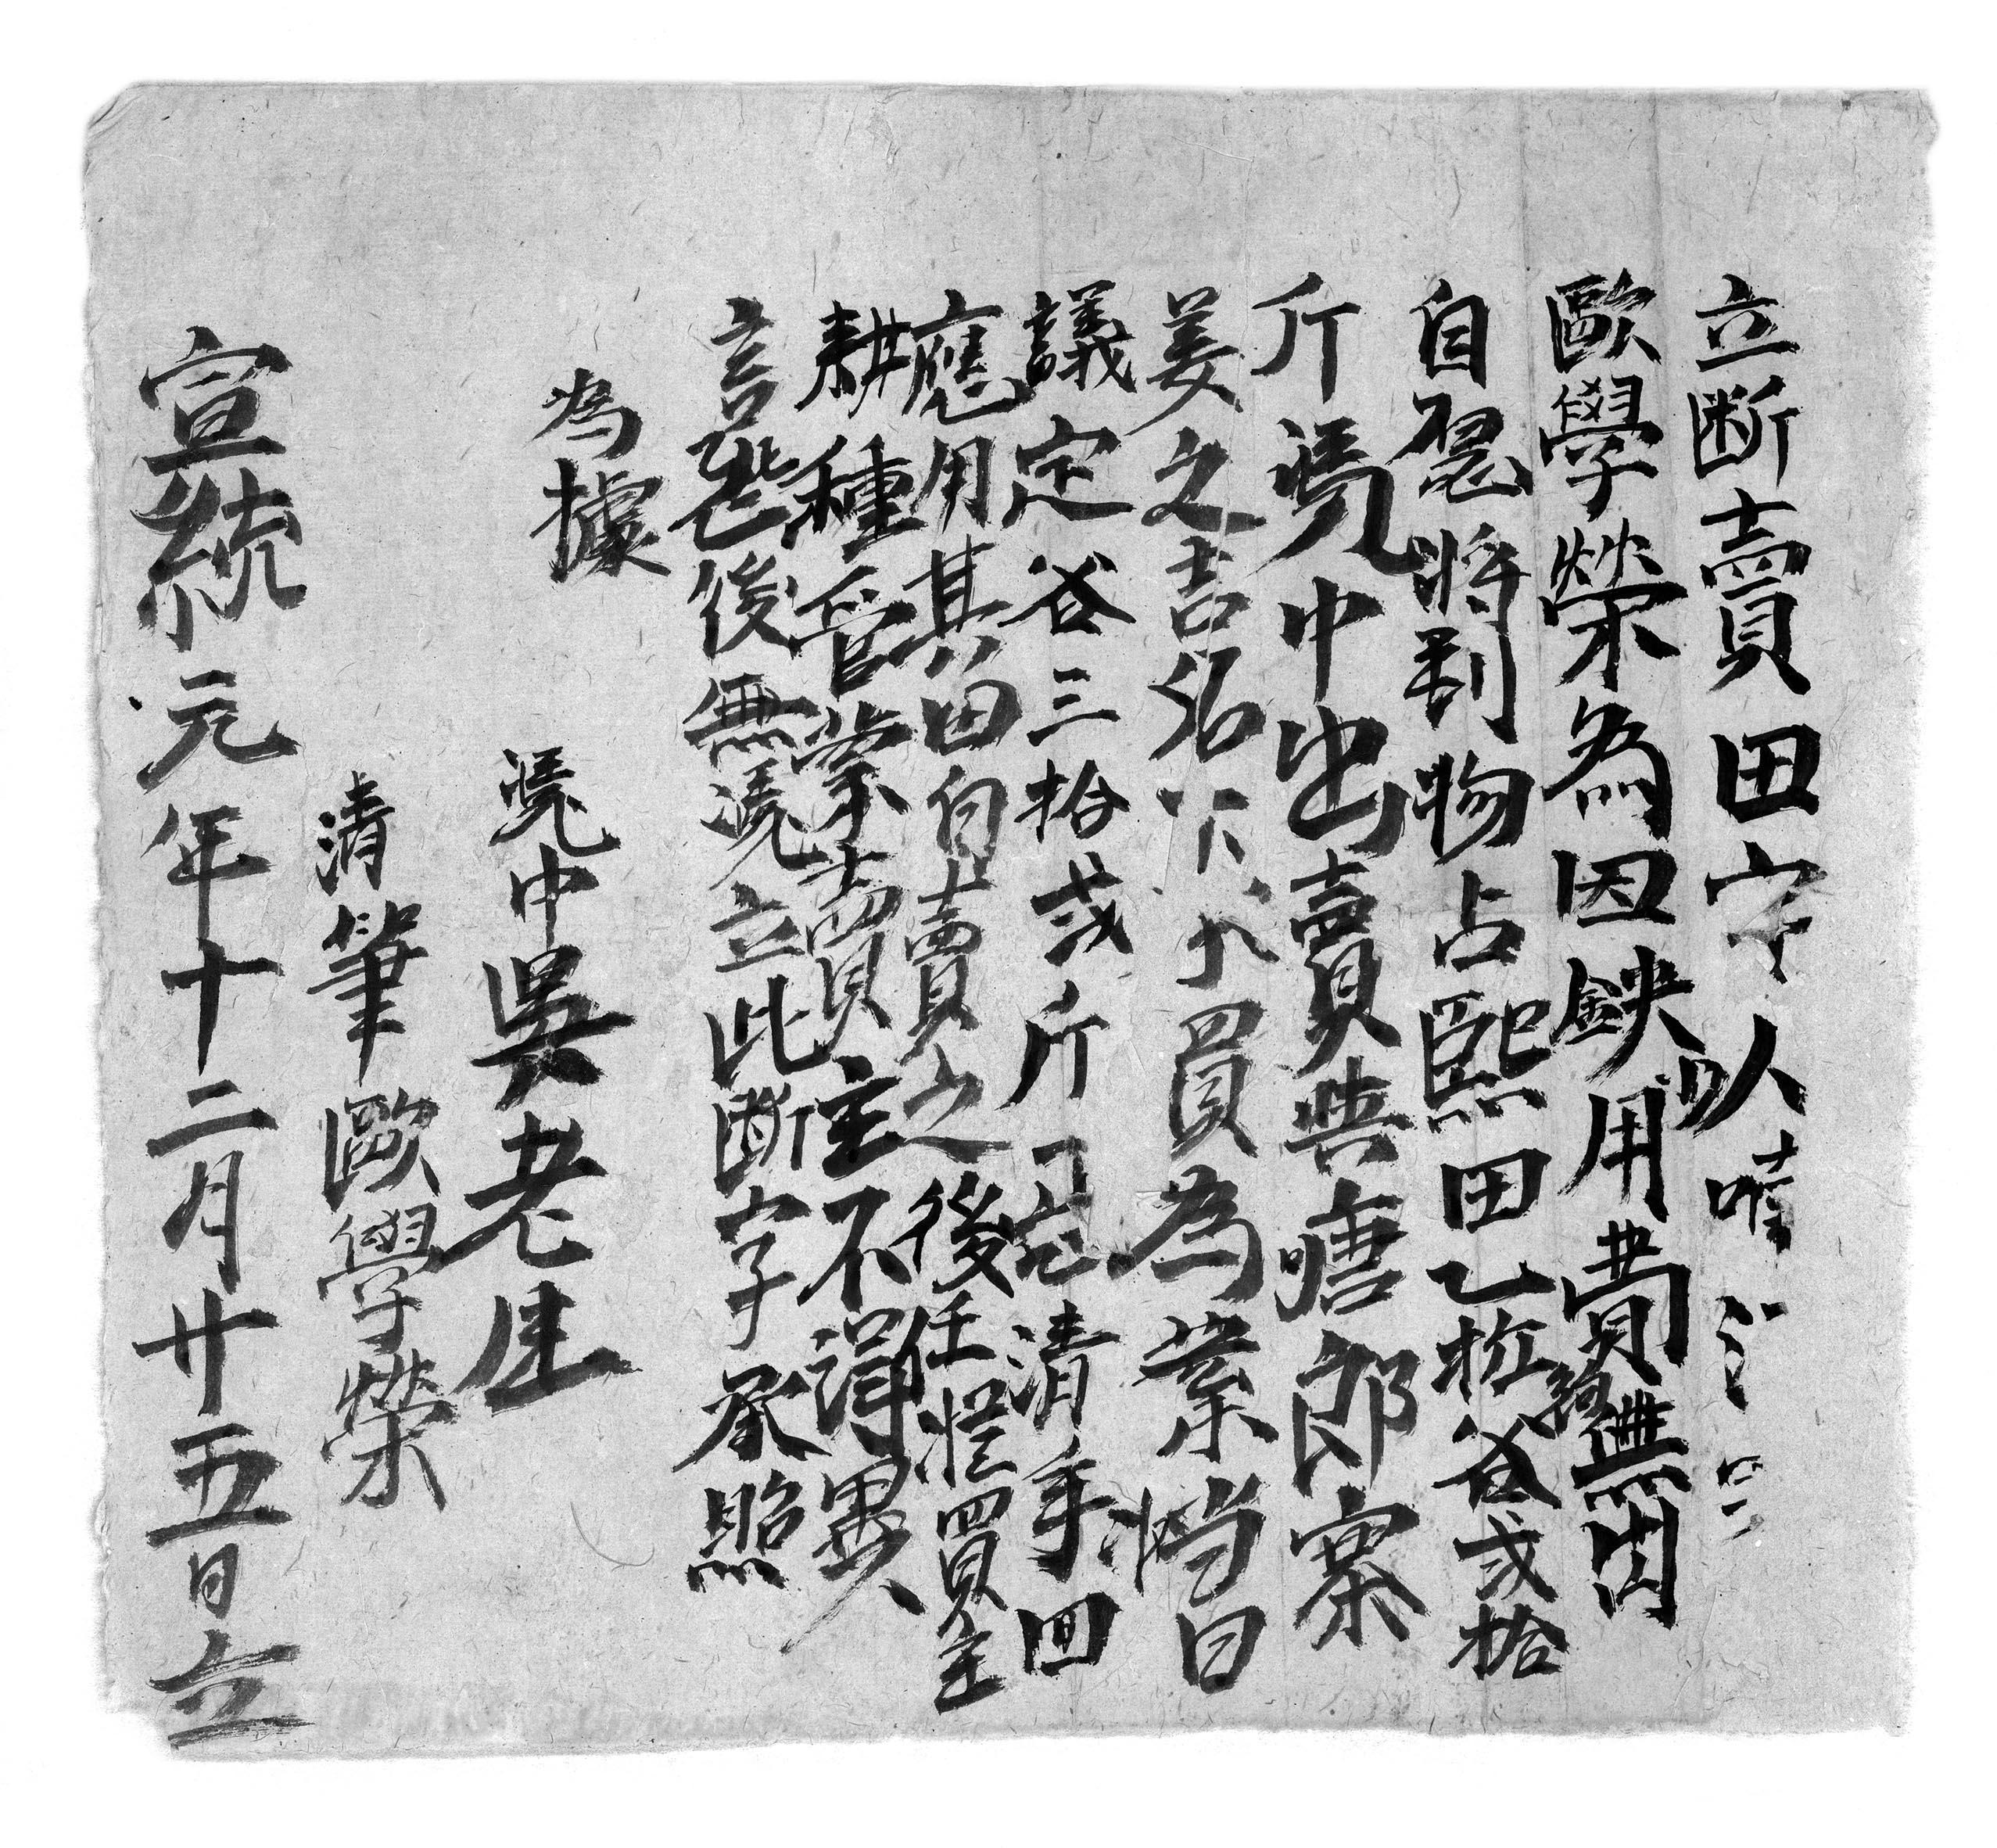 立断賣田字人
歐學榮為因缺用費無
自愿將到物占熙田乙坵谷弍拾
斤凴中出賣與唐郎寨
姜之吉名下承買為業當日
議定谷三拾弍斤清手回
應用其田自賣之後任從買主
耕種管業賣主不得異
言恐後無凴立此断字承照
為據
凴中吳老
清筆歐學榮
宣統元年十二月廿五日立